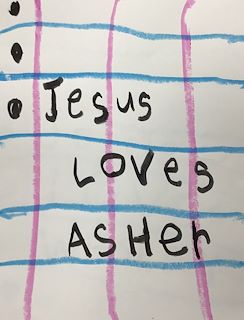 Jesus
Loves
Asher